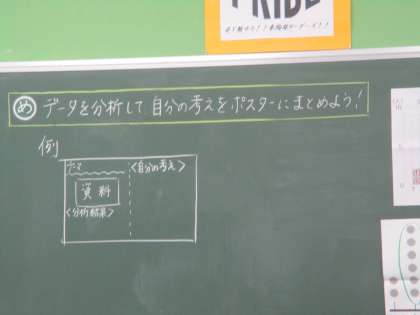 PRIDE
め データを分析して 自分の考えをポスターにまとめよう!
例
テーマ
<自分の考え>
資料
<分析結果>